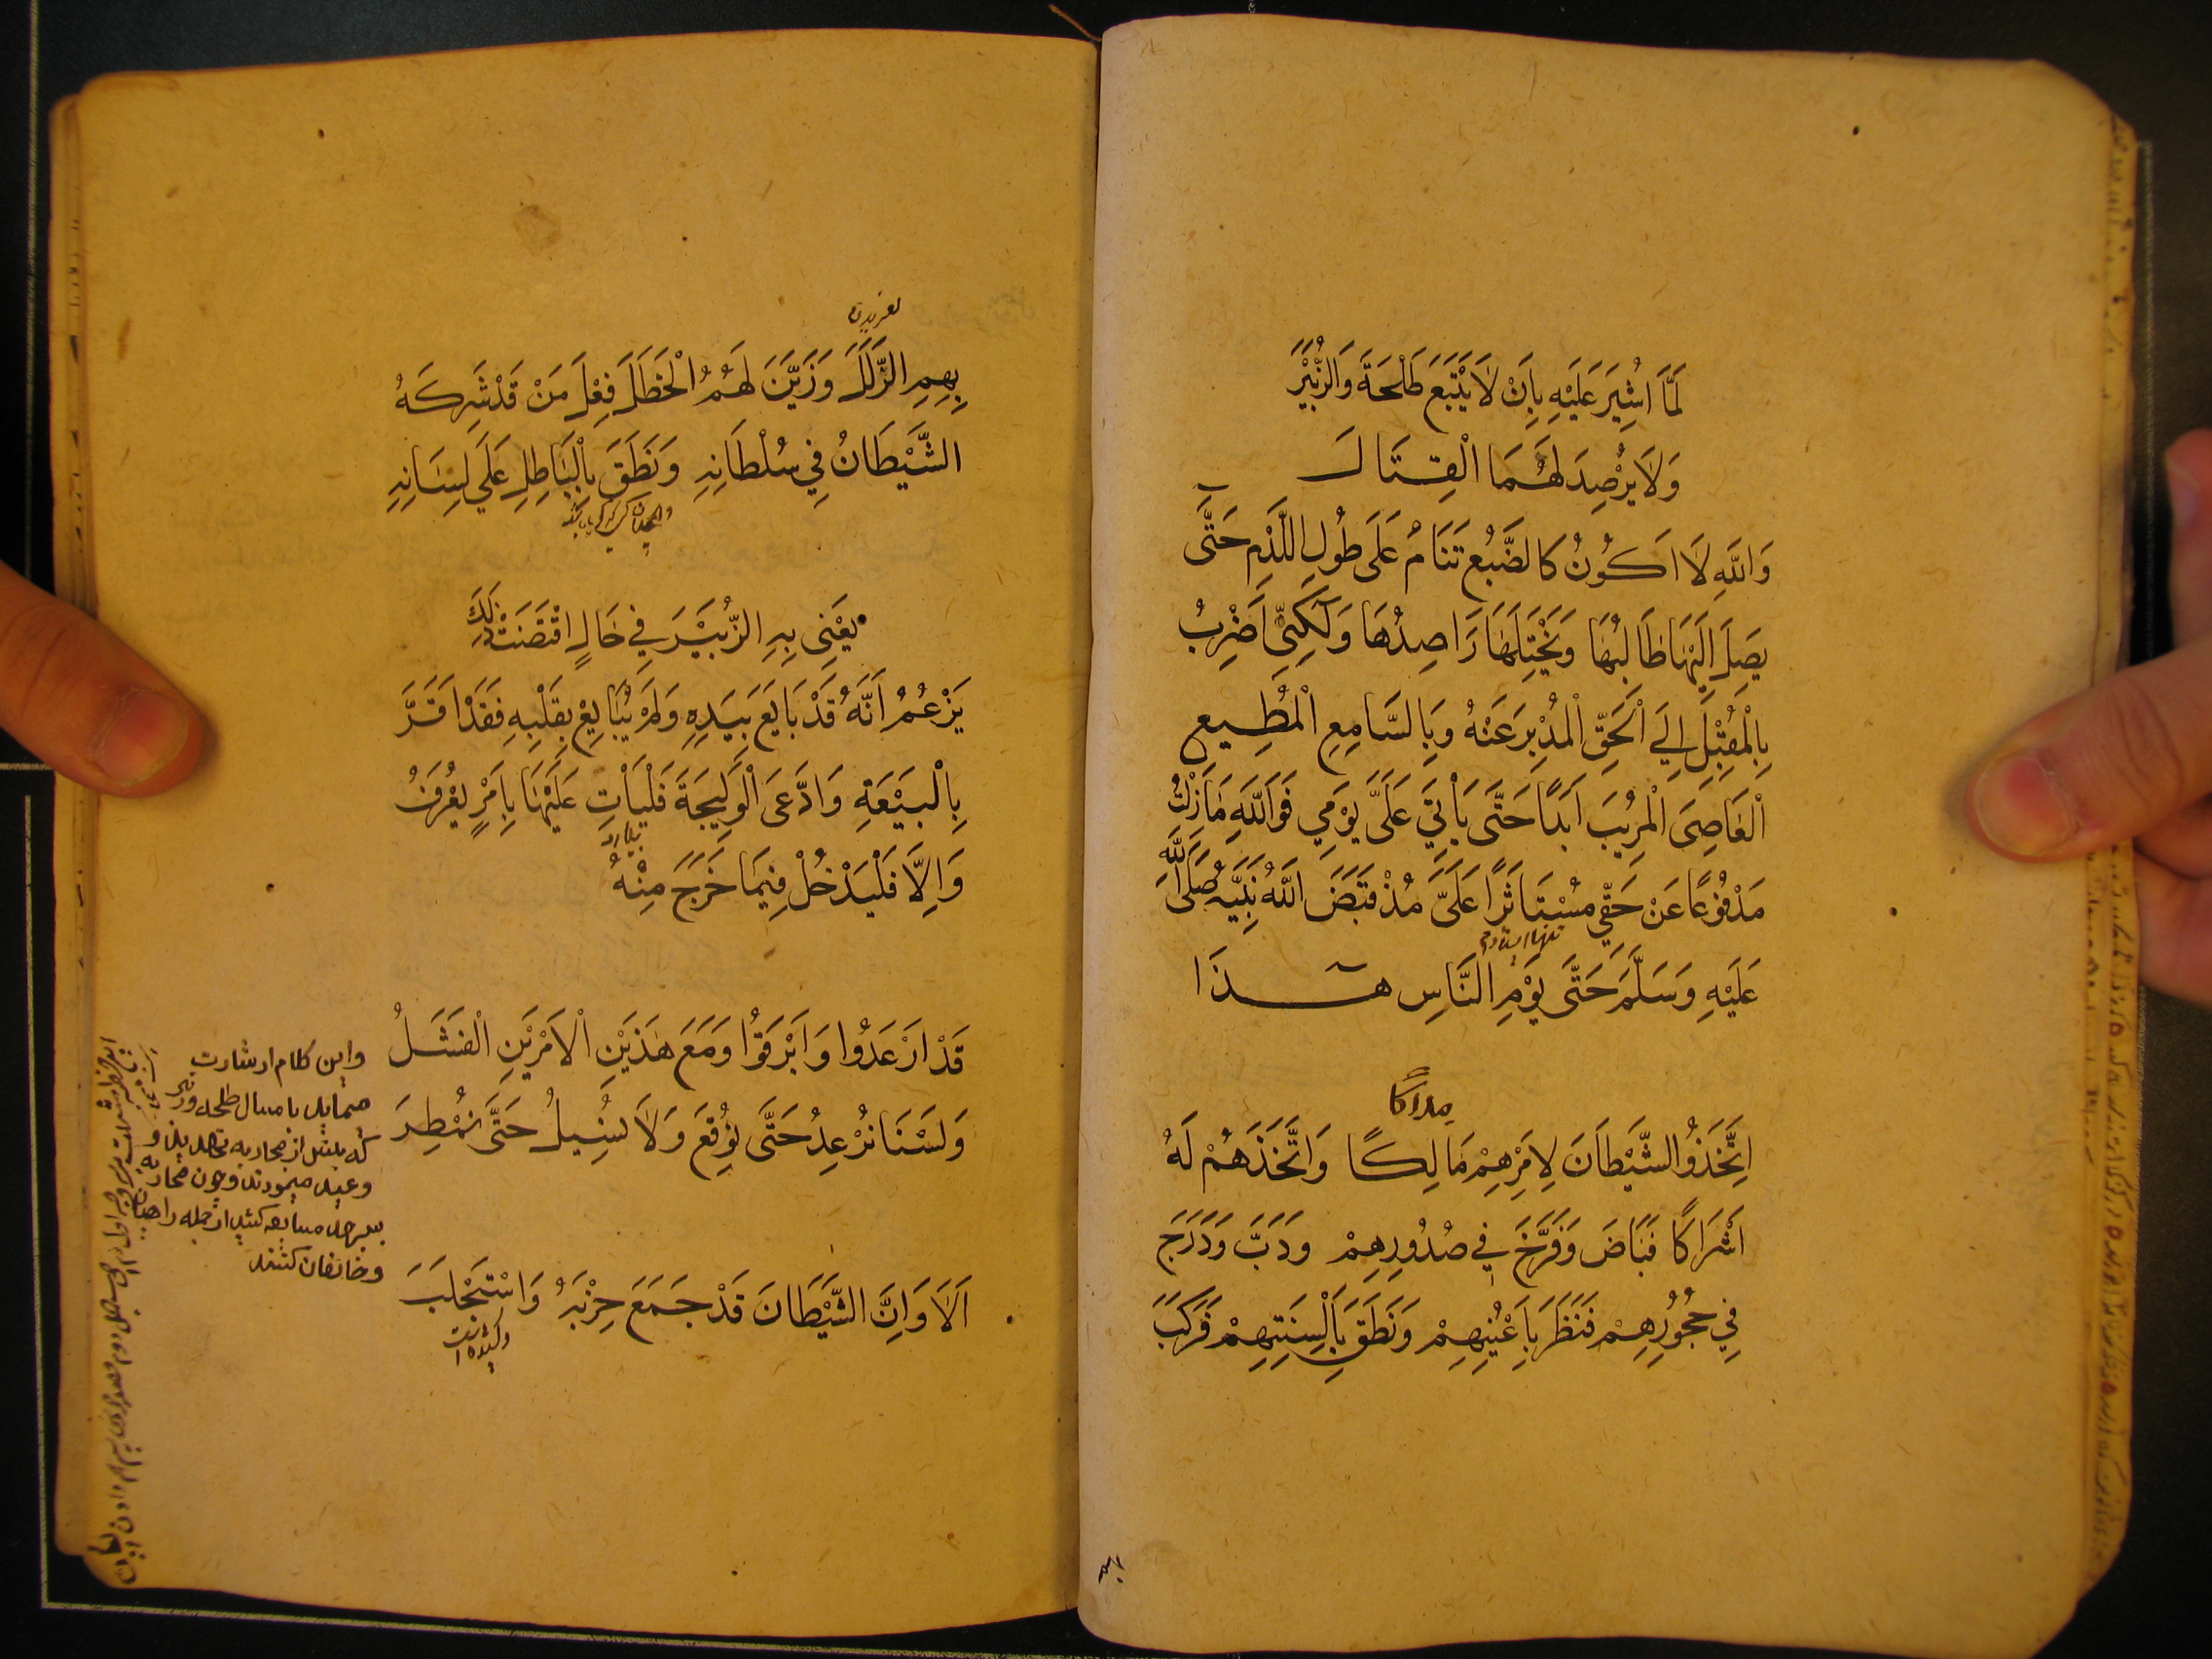 لَمَّا اُشِيرَ عَلَيْهِ بِاَنْ لَا يَتْبَعَ طَلْحَةَ وَالزُّبَيْرَ
وَلَا يُرْصِدَ لَهُمَا الْقِتَالَ
وَاللَّهِ لَا اَكُونُ كَالضَّبُعِ تَنَامُ عَلَى طُولِ اللَّدْمِ حَتَّى
يَصِلَ اِلَيْهَا طَالِبُهَا وَيَخْتِلَهَا رَاصِدُهَا وَلَكِنِّي اَضْرِبُ
بِالْمُقْبِلِ اِلَي الْحَقِّ الْمُدْبِرَ عَنْهُ وَبِالسَّامِعِ الْمُطِيعِ
الْعَاصِيَ الْمُرِيبَ اَبَدًا حَتَّى يَاْتِيَ عَلَيَّ يَوْمِي فَوَاللَّهِ مَا زِلْتُ
مَدْفُوعًا عَنْ حَقِّي مُسْتَاثَرًا عَلَيَّ مُذْ قَبَضَ اللَّهُ نَبِيَّهُ صَلَّى اللَّهُ
عَلَيْهِ وَسَلَّمَ حَتَّى يَوْمِ النَّاسِ هَذَا
مِلَاكًا
اِتَّخَذُوا الشَّيْطَانَ لِاَمْرِهِمْ مَالِكًا وَاتَّخَذَهُمْ لَهُ
اَشْرَاكًا فَبَاضَ وَفَرَّخَ فِي صُدُورِهِمْ وَدَبَّ وَدَرَجَ
فِي حُجُورِهِمْ فَنَظَرَ بِاَعْيُنِهِمْ وَنَطَقَ بِاَلْسِنَتِهِمْ فَرَكِبَ
بهم
بِهِمِ الزَّلَلَ وَزَيَّنَ لَهُمُ الْخَطَلَ فِعْلَ مَنْ قَدْ شَرِكَهُ
الشَّيْطَانُ فِي سُلْطَانِهِ وَنَطَقَ بِالْبَاطِلِ عَلَي لِسَانِهِ
يَعْنِي بِهِ الزُّبَيْرَ فِي حَالٍ اقْتَضَتْ ذَلِكَ
يَزْعُمُ اَنَّهُ قَدْ بَايَعَ بِيَدِهِ وَلَمْ يُبَايِعْ بِقَلْبِهِ فَقَدْ اَقَرَّ
بِالْبَيْعَةِ وَادَّعَى الْوَلِيجَةَ فَلْيَاْتِ عَلَيْهَا بِاَمْرٍ يُعْرَفُ
وَاِلَّا فَلْيَدْخُلْ فِيمَا خَرَجَ مِنْهُ
قَدْ اَرْعَدُوا وَاَبْرَقُوا وَمَعَ هَذَيْنِ الْاَمْرَيْنِ الْفَشَلُ
وَلَسْنَا نُرْعِدُ حَتَّى نُوقِعَ وَلَا نُسِيلُ حَتَّى نُمْطِرَ
اَلَا وَاِنَّ الشَّيْطَانَ قَدْ جَمَعَ حِزْبَهُ وَاسْتَجْلَبَ
واين كلام اشارت
طلحه وزبير
كه پيش از محاربه تهديد و
وعيد مينمودند وچون محاربه